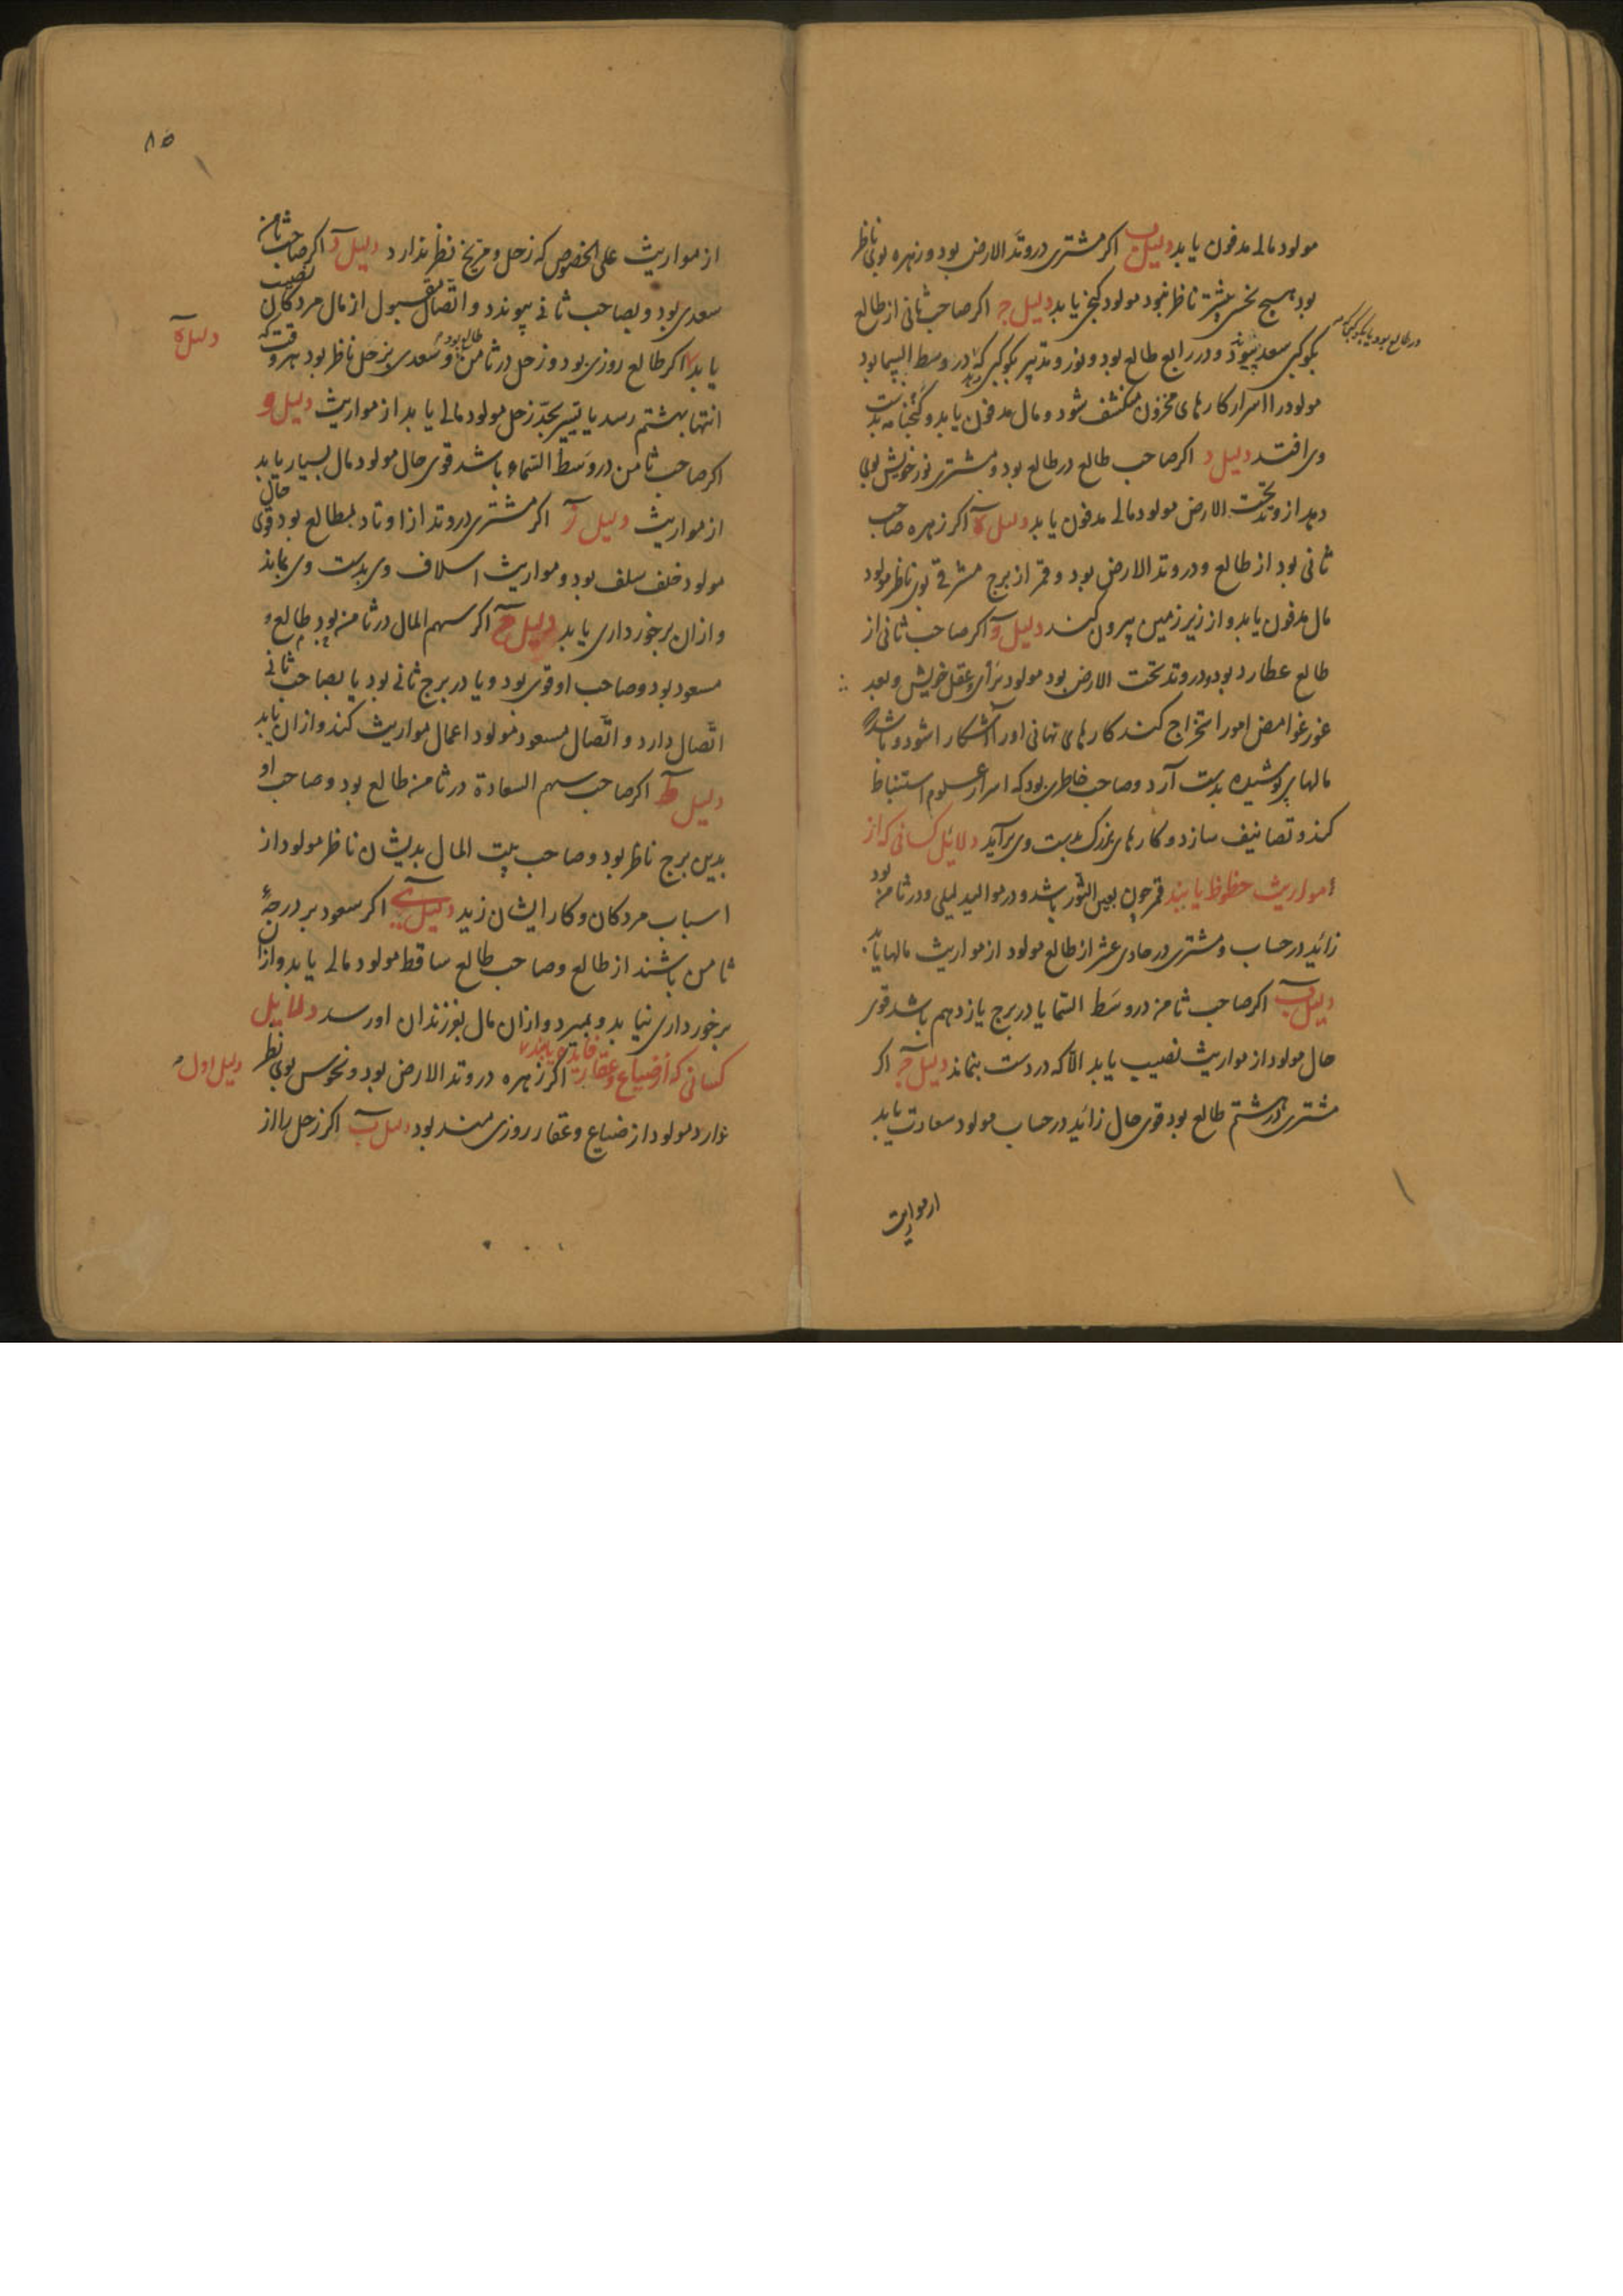 مولود مالی مدفون یابد دلیل ب اکر مشتری در وتد الارض بود و زهره بوی ناظر
بود هیچ نحس بمشتری ناظر نبود مولود کنجی یابد دلیل ج اکر صاحب ثانی از طالع
در طالع بود یا بکوکبی که
بکوکبی سعد پیوندد و در رابع طالع بود و نور و تدبیر بکوکبی دهد که در وسط السما بود
مولود را اسرار کارهای مخزون منکشف شود و مال مدفون یابد و کنجنامه بدست
وی افتد دلیل د اکر صاحب طالع در طالع بود و مشتری نور خویش بوی
دهد از وتد تحت الارض مولود مالی مدفون یابد دلیل ه اکر زهره صاحب
ثانی بود از طالع و در وتد الارض بود و قمر از برج مشرقی بوی ناظر مولود
مال مدفون یابد و از زیر زمین بیرون کند دلیل و اکر صاحب ثانی از
طالع عطارد بود و در وتد تحت الارض بود مولود برأی و عقل خویش و بعد
غور غوامض امور استخراج کند کارهای نهانی او را آشکارا شود و باشد که
مالهای پوشیده بدست آرد و صاحب خاطری بود که اسرار علوم استنباط
کند و تصانیف سازد و کارهای بزرک بدست وی برآید دلائل کسانی که از
مواریث حظوظ یابند قمر چون بعین الثور باشد و در موالید لیلی و در ثامن بود
زائد در حساب و مشتری در حادی عشر از طالع مولود از مواریث مالها یابد
دلیل ب اکر صاحب ثامن در وسط السما یا در برج یازدهم باشد قوی
حال مولود از مواریث نصیب یابد الا که در دست بنماند دلیل ج اکر
مشتری در هشتم طالع بود قوی حال زائد در حساب مولود سعادت یابد
از مواریث
۸۵
از مواریث علی الخصوص که زحل و مریخ نظر ندارد دلیل د اکر صاحب ثامن
سعدی بود و بصاحب ثانی پیوندد و اتصال مقبول از مال مردکان نصیب
دلیل ه
یابد اکر طالع روزی بود و زحل در ثامن طالع بود و سعدی بزحل ناظر بود بهر وقت که
انتها بهشتم رسد یا تسییر بحد زحل مولود مالی یابد از مواریث دلیل و
اکر صاحب ثامن در وسط السماء باشد قوی حال مولود مال بسیار یابد
از مواریث دلیل ز اکر مشتری در وتد از اوتاد طالع بود قوی حال
مولود خلف سلف بود و مواریث اسلاف وی بدست وی بماند
و ازان برخورداری یابد دلیل ح اکر سهم المال در ثامن بود طالع و
مسعود بود و صاحب او قوی بود و یا در برج ثانی بود یا بصاحب ثانی
اتصال دارد و اتصال مسعود مولود اعمال مواریث کند و ازان یابد
دلیل ط اکر صاحب سهم السعادة در ثامن طالع بود و صاحب او
بدین برج ناظر بود و صاحب بیت المال بدیشان ناظر مولود از
اسباب مردکان و کار ایشان زید دلیل ی اکر سعود بر درجهٔ
ثامن باشند از طالع و صاحب طالع ساقط مولود مالی یابد و ازان
برخورداری نیابد و بمیرد و ازان مال بفرزندان او رسد دلایل
کسانی که از ضیاع و عقار فایده یابند دلیل اول اکر زهره در وتد الارض بود و نحوس بوی نظر
ندارد مولود از ضیاع و عقار روزی مند بود دلیل ب اکر زحل را از